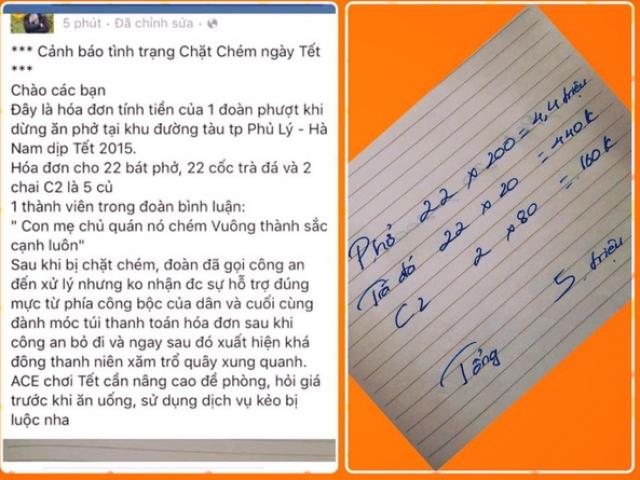 5 phút · Đã chỉnh sửa ·
*** Cảnh báo tình trạng Chặt Chém ngày Tết
***
Chào các bạn
Đây là hóa đơn tính tiền của 1 đoàn phượt khi
dừng ăn phở tại khu đường tàu tp Phủ Lý - Hà
Nam dịp Tết 2015.
Hóa đơn cho 22 bát phở, 22 cốc trà đá và 2
chai C2 là 5 củ
1 thành viên trong đoàn bình luận:
" Con mẹ chủ quán nó chém Vuông thành sắc
cạnh luôn"
Sau khi bị chặt chém, đoàn đã gọi công an
đến xử lý nhưng ko nhận đc sự hỗ trợ đúng
mực từ phía công bộc của dân và cuối cùng
đành móc túi thanh toán hóa đơn sau khi
công an bỏ đi và ngay sau đó xuất hiện khá
đông thanh niên xăm trổ quây xung quanh.
ACE chơi Tết cần nâng cao đề phòng, hỏi giá
trước khi ăn uống, sử dụng dịch vụ kẻo bị
luộc nha
Phở 22 x 200 = 4,4 triệu
Trà đá 22 x 20 = 440 k
C2 2 x 80 = 160 k
Tổng 5 triệu